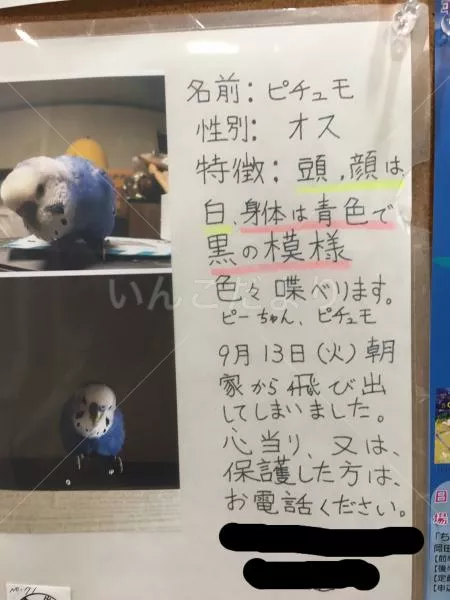 名前：ピチュモ
性別：オス
特徴：頭，顔は
白、身体は青色で
黒の模様
色々喋べります。
ピーちゃん、ピチュモ
9月13日（火）朝
家から飛び出
してしまいました。
心当り、又は、
保護した方は、
お電話ください。
いんこだより
日
場